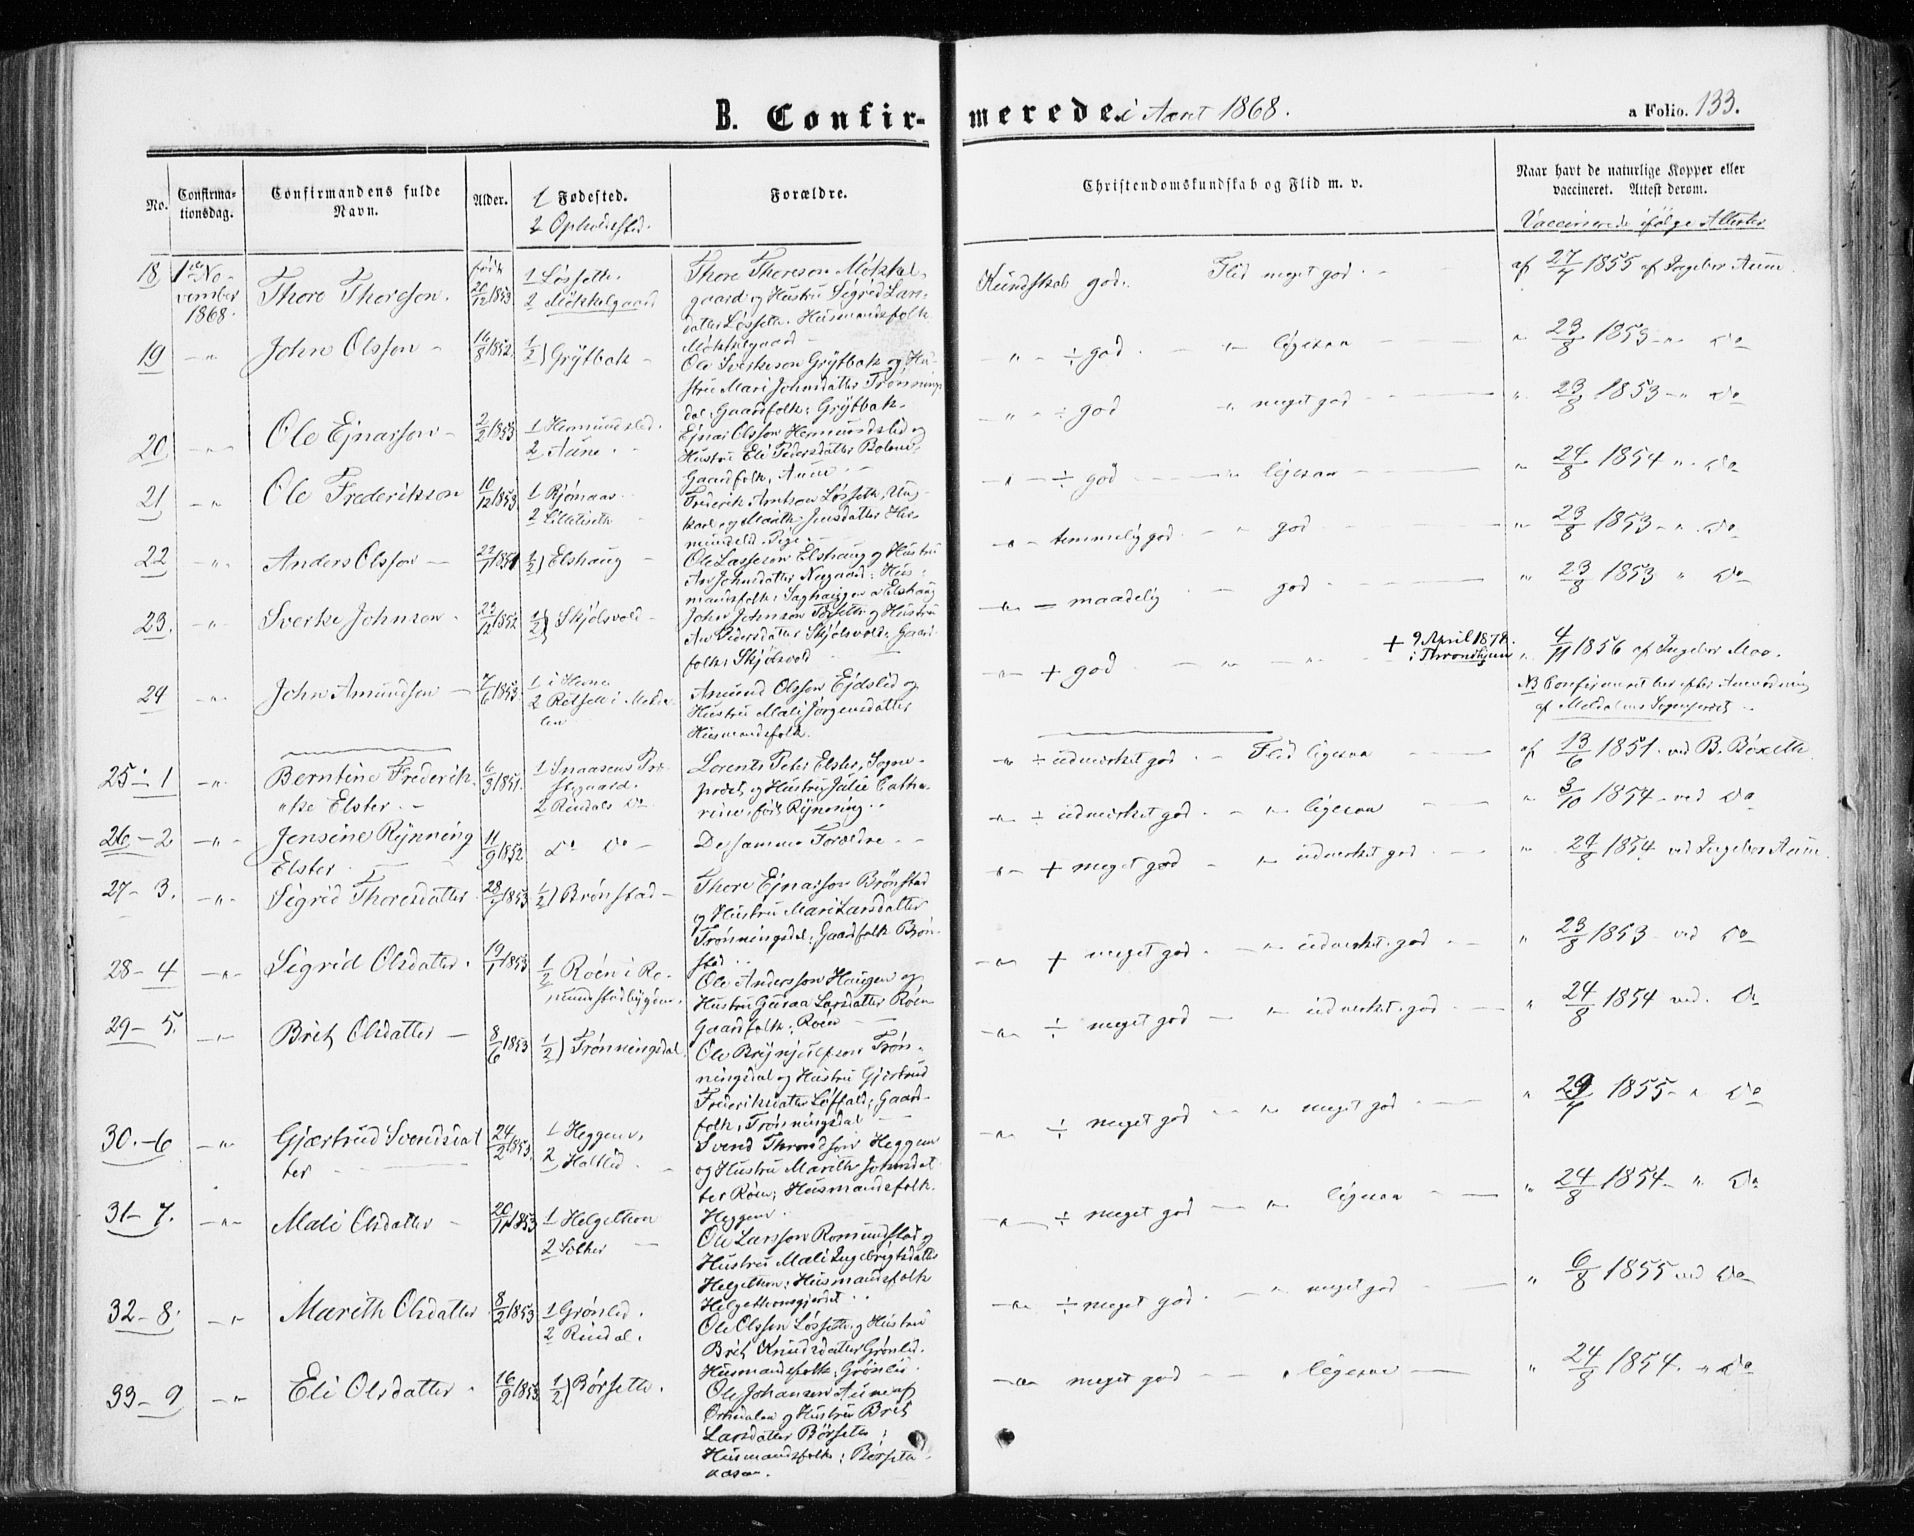 B. Confir-
merede i Aaret 1868.
a Folio. 133.
No.
Confirma-
tionsdag.
Confirmandens fulde
Navn.
Alder.
1 Fødested.
2 Opholdssted.
Forældre.
Christendomskundskab og Flid m. v.
Naar havt de naturlige Kopper eller
vaccineret. Attest derom.
Vaccinerede ifølge Attester
18 1ste No-
vember
1868.
Thore Thoreson.
født
20/12 1853
1 Løsseth.
2 Møkkelgaard
Thore Thoreson Møkkel-
gaard og Hustru Sigrid Lars-
datter Løsseth. Husmandsfolk
Møkkelgaard
Kundskab god. Flid meget god.
af 27/7 1855 af Ingebr Aune
19 -"- John Olsson -
16/8 1852.
1/2) Grytbak -
Ole Sverkeson Grytbak og Hu-
stru Mari Johnsdatter Trønnings-
dal; Gaardfolk: Grytbak.
-"- ÷ god. - " ligesaa
" 23/8 1853 -"- Do
20 -"- Ole Ejnarson -
2/2 1853
1 Hermundslid.
2 Aune.
Ejnar Olsson Hermundslid og
Hustru Eli Pedersdatter Bolme,
Gaardfolk, Aune
-"- ÷ god " meget god
" 23/8 1853 -"- Do
21 -"- Ole Frederikson
10/12 1853
1 Bjønaas
2 Lilletiseth
Frederik Arntson Løsseth, Ung-
karl og Marith Jensdatter Her-
mundslid. Pige.
-"- ÷ god -"- ligesaa
" 24/8 1854 " Do
22 -"- Anders Olsson -
1/2) Elshaug -
Ole Lassesøn Elshaug og Hustru
An Johnsdatter Nergaard: Hus-
mandsfolk: Saghaugen a Elshaug
-"- temmelig god - " god
" 23/8 1853 -"- Do
23. -"- Sverke Johnson
23/12 1852
1/2) Skjølsvold -
John Johnson Tiseth og Hustru
An Pedersdatter Skjølsvold. Gaard-
folk: Skjølsvold
-"- - maadelig - god
" 23/8 1853 " Do
24 -"- John Amundson -
7/6 1853.
1 i Hevne
2 Rolfseth i Melda-
len
Amund Olsson Ejdslid og
Hustru Mali Jørgensdatter
Husmandsfolk.
-"- + god - " - "
+ 9 April 1878.
i Throndhjem
" 4/11 1856 af Ingebr Moe.
NB Confirmeret her efter Anvisning
af Meldalens Sognepræst
25-1 -"- Berntine Frederik-
ke Elster. -
6/3 1851.
1 Snaasens Præ-
stegaard.
2 Rindals Do
Lorents Peter Elster, Sogne-
præst, og Hustru Julie Catha-
rine født Rynning.
-"- ÷ udmærket god - Flid ligesaa
af 13/6 1851. ved B. Böseth
26-2 -"- Jensine Rynning
Elster.
11/9 1852
Do Do -
De samme Forældre -
-"- ÷ udmærket god. - " ligesaa
" 3/10 1854 - ved Do
27-3. -"- Sigrid Thoresdatter.
1/2) Brønstad -
Thore Ejnarson Brønstad
og Hustru Mari Larsdatter
Trønningsdal; Gaardfolk Brøn-
stad.
-"- + meget god - " udmærket god
" 24/8 1854 ved Ingebr Aune.
28-4 -"- Sigrid Olsdatter.
1/2 Roen i Ro-
mundstadbygden.
Ole Andersson Haugen og
Hustru Guraa Larsdatter Roen
Gaardfolk; Roen -
-"- + meget god. - " udmærket god
" 23/8 1853 - ved Do
29-5. -"- Brit Olsdatter -
8/6 1853
1/2) Trønningsdal.
Ole Brynjulfson Trøn-
ningsdal og Hustru Gjertrud
Frederiksdatter Løsseth; Gaard-
folk, Trønningsdal
-"- ÷ meget god - " udmærket god
" 24/8 1854 ved. Do
30.-6 -"- Gjærtrud Svendsdat-
ter
24/2 1853.
1 Heggem,
2 Holtlid.
Svend Throndson Heggem
og Hustru Marith Johnsdat-
ter Roen; Husmandsfolk.
Heggem.
-"- ÷ meget god - " meget god
" 29/7 1855 - " Do
31-7. -"- Mali Olsdatter -
20/11 1853
1 Helgethon
2 Sæther
Ole Larsson Romundstad og
Hustru Mali Ingebrigtsdatter
Helgethon: Husmandsfolk
Helgethonsgjerdet.
-"- ÷ meget god - " ligesaa
" 24/8 1854 - " Do
32-8. -"- Marith Olsdatter
8/2 1853
1 Grønlid.
2 Rindal.
Ole Olsson Løsseth og Hustru
Brit Knudsdatter Grønlid.
Husmandsfolk: Grønlid.
-"- ÷ meget god. - " meget god
" 6/8 1855 ved Do
33-9 -"- Eli Olsdatter.
16/9 1853
1/2) Børseth.
Ole Johansen Aune af
Orkedalen og Hustru Brit
Larsdatter Børseth;
Husmandsfolk; Børseth-
aasen.
-"- meget god - " ligesaa -
" 24/8 1854. " Do